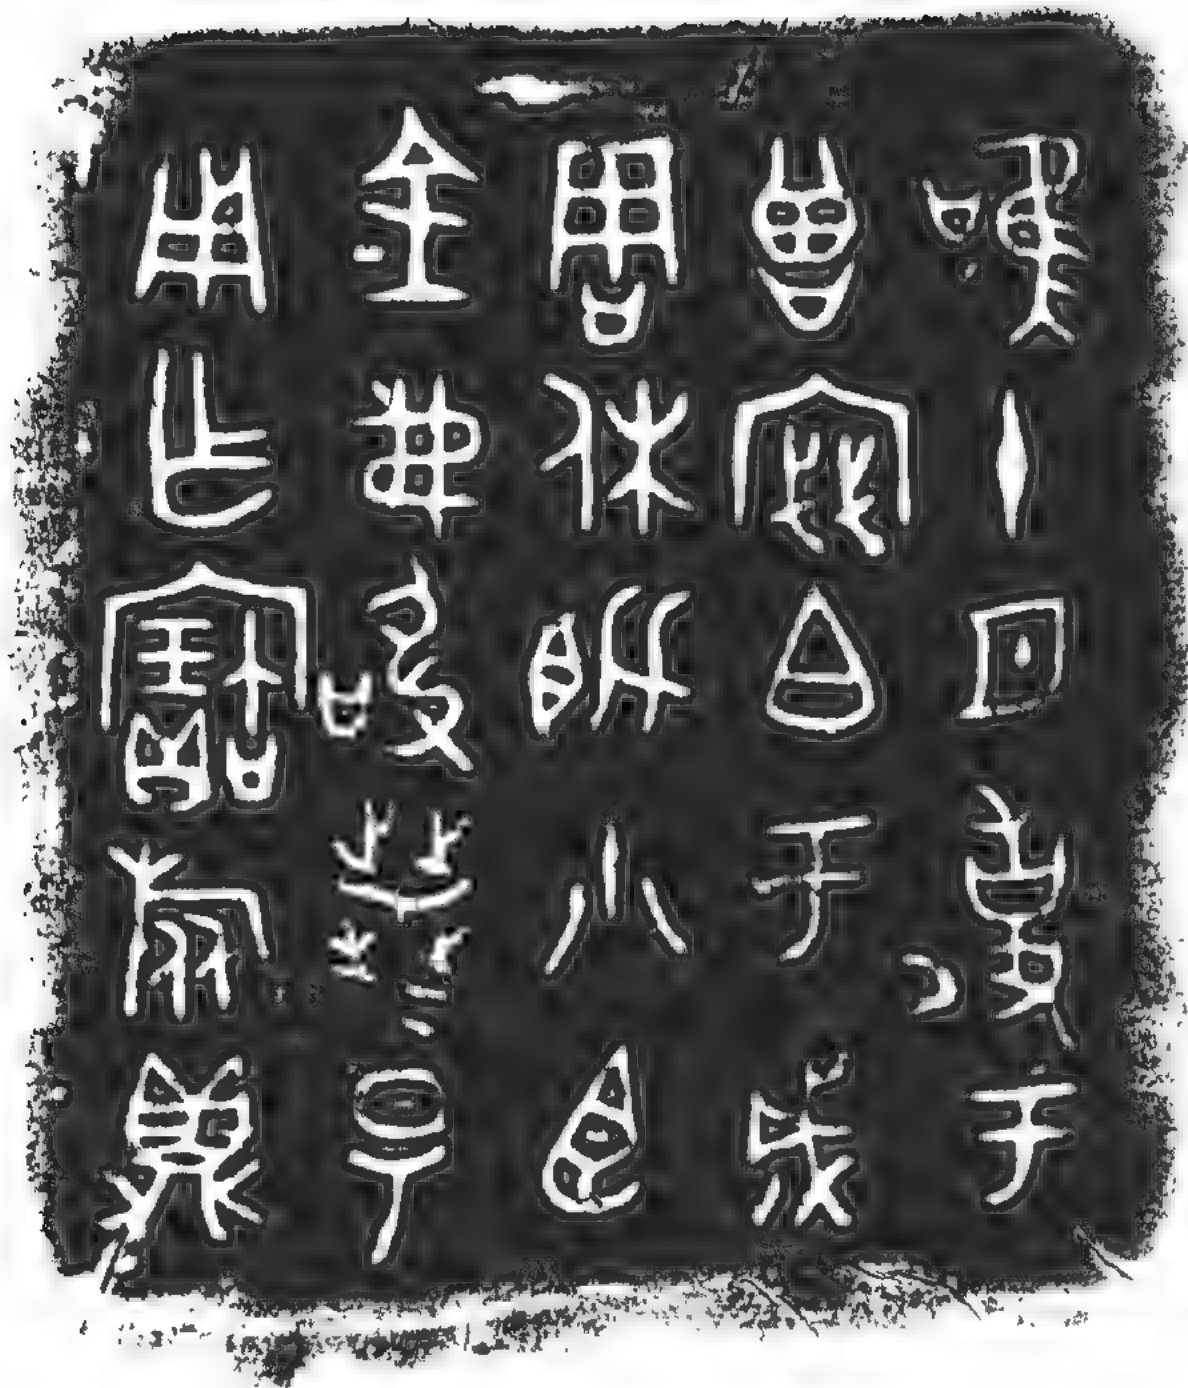 唯十月事于
曾密白于成
周休毗小臣
金弗敢喪昜
用乍寶旅鼎